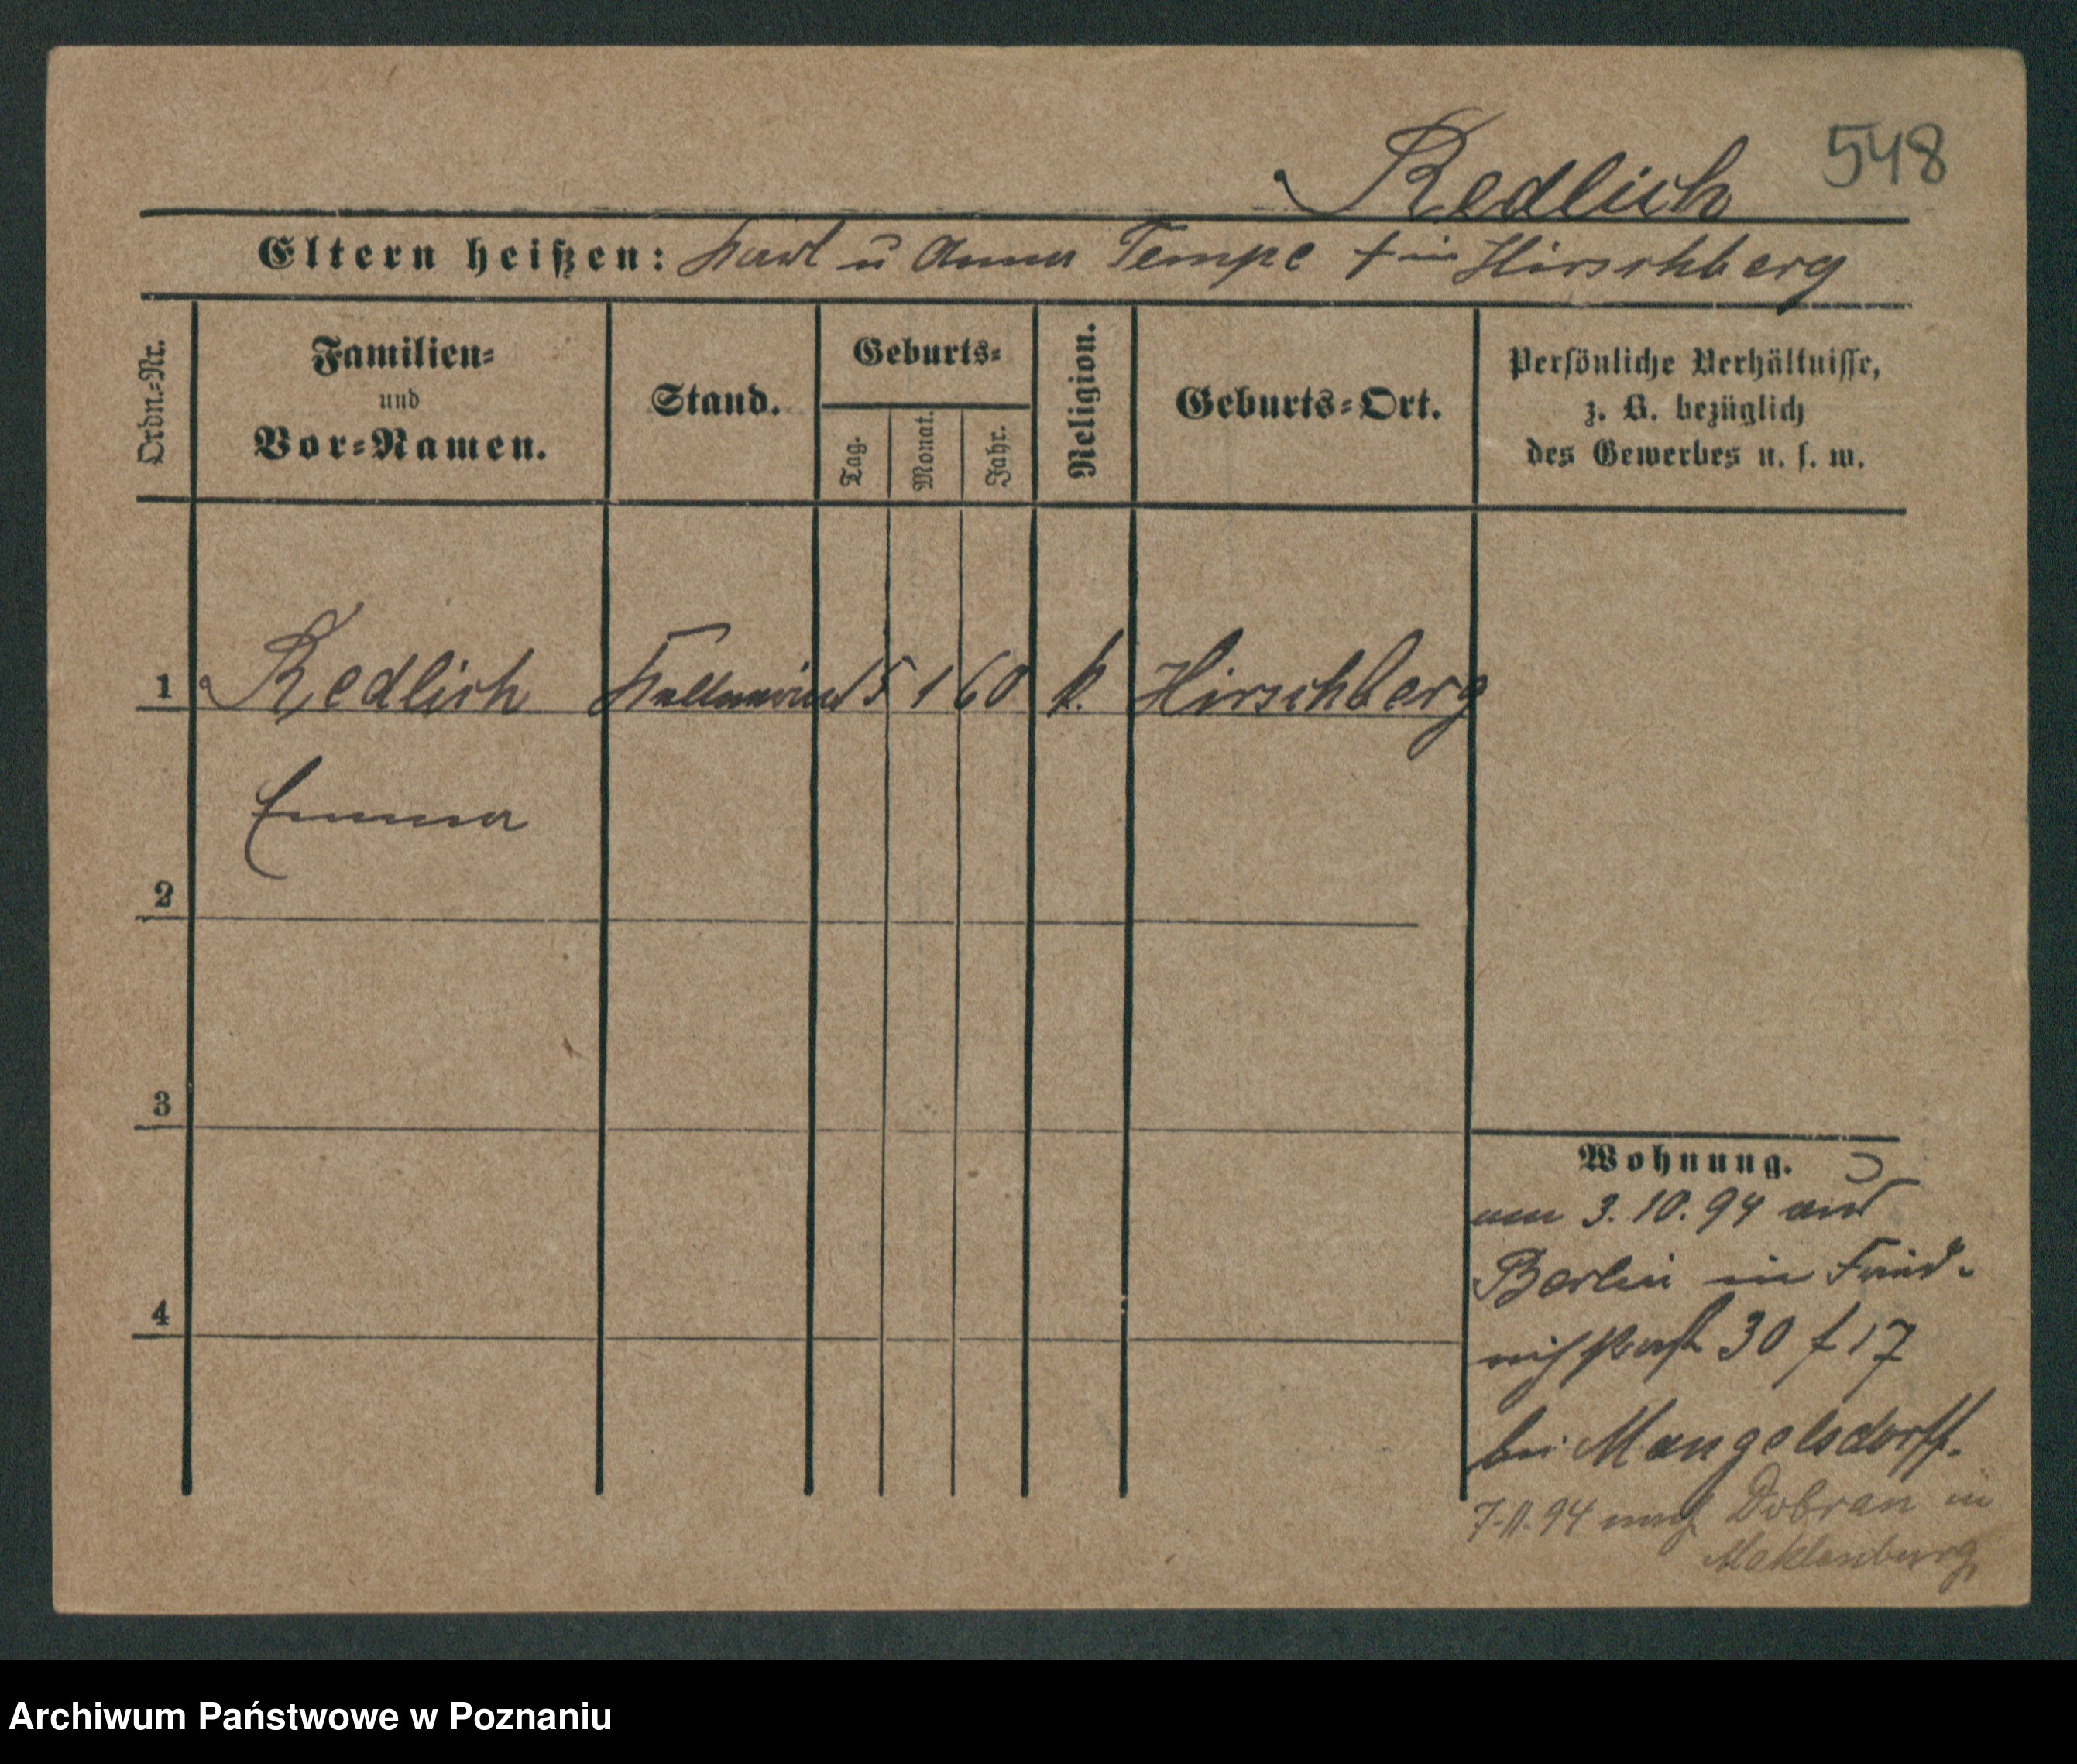 548
Redlich
Eltern heißen: Karl u Anna Tempe † in Hirschberg
Ordn.=Nr.
Familien=
und
Vor=Namen.
Stand.
Geburts=
Tag.
Monat.
Jahr.
Religion.
Geburts=Ort.
Persönliche Verhältnisse,
z. B. bezüglich
des Gewerbes u. s. w.
1 Redlich Kellnerin 15 1 60 k. Hirschberg
Emma
2
3
4
Wohnung.
am 3. 10. 94 aus
Berlin in Fried-
30 17
bei Mangelsdorff.
7.11.94 nach Dobran in
Meklenburg
Archiwum Państwowe w Poznaniu